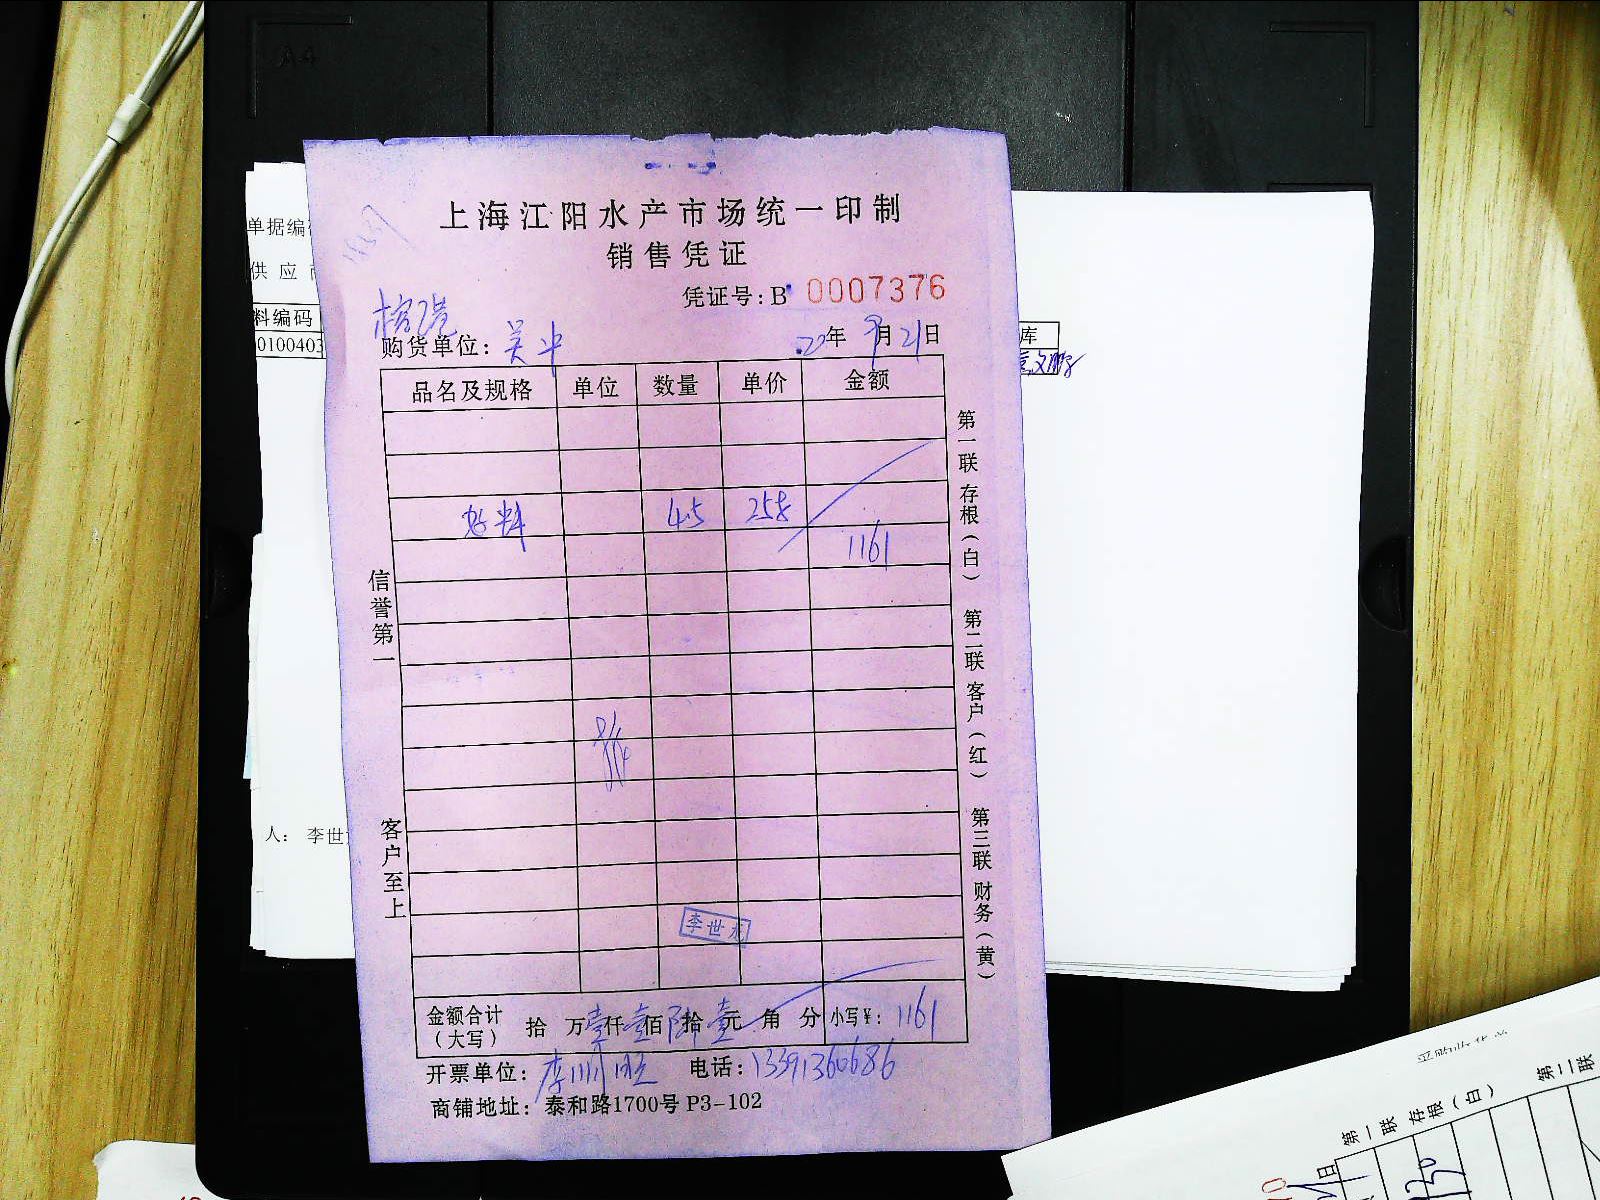 A4
上海江阳水产市场统一印制
销售凭证
凭证号：B 0007376
购货单位：吴中
22年 9月21日
品名及规格 单位 数量 单价 金额
好料 4.5 258
1161
金额合计（大写） 拾 万壹仟壹佰陆拾壹元 角 分 小写￥：1161
开票单位：李
电话：13391360686
商铺地址：泰和路1700号 P3-102
信誉第一
客户至上
第一联 存根（白） 第二联 客户（红） 第三联 财务（黄）
李世龙
单据编
供 应
料编码
0100403
库
人： 李世
第一联 存根（白） 第二联